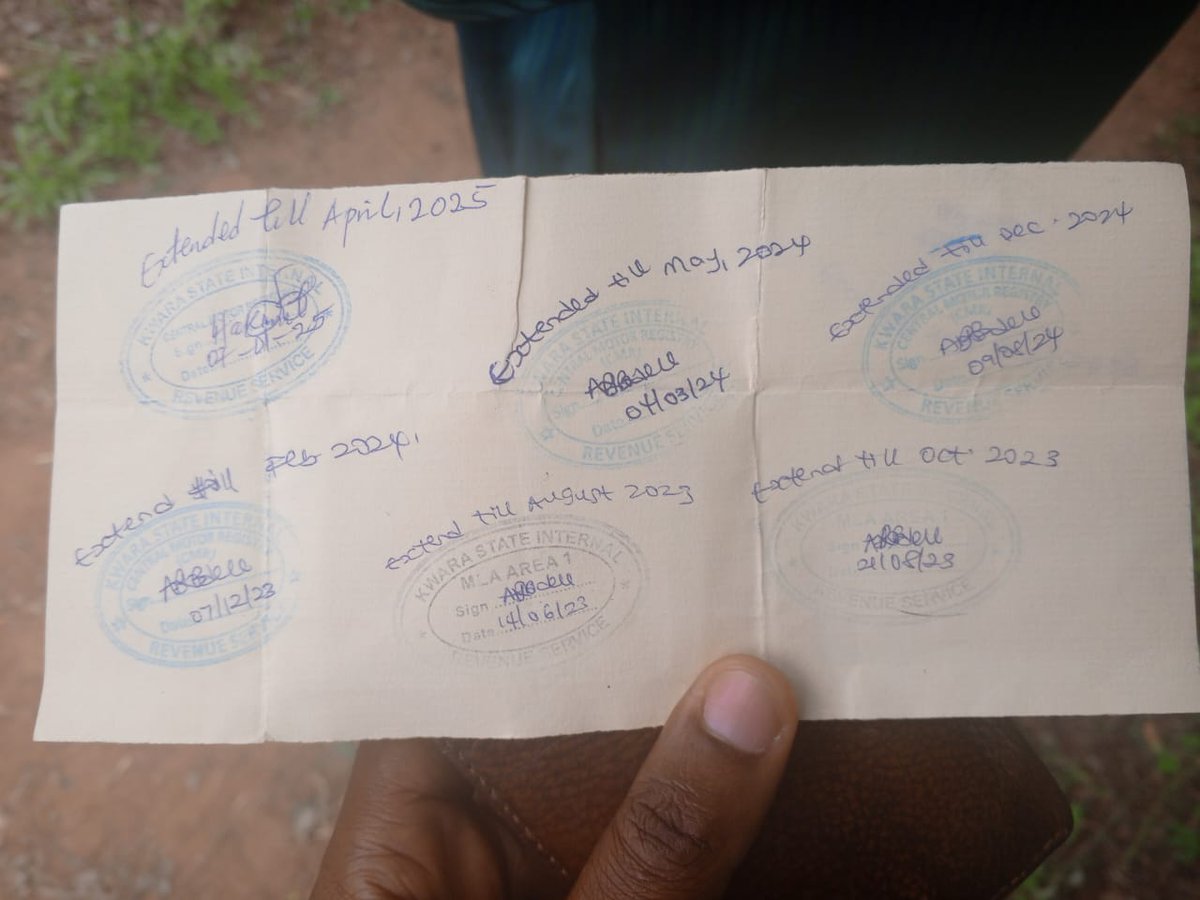 Extended till April, 2025
KWARA STATE INTERNAL
Sign
07-01-25
Date
REVENUE SERVICE
Extended till May, 2024
KWARA STATE INTERNAL
CENTRAL MOTOR REGISTRY
(CMR)
Sign
Date 04/03/24
REVENUE SERVICE
Extended till Dec. 2024
KWARA STATE INTERNAL
CENTRAL MOTOR REGISTRY
(CMR)
Sign
09/08/24
REVENUE SERVICE
Extend till Feb 2024,
KWARA STATE INTERNAL
CENTRAL MOTOR REGISTRY
(CMR)
Sign
Date 07/12/23
REVENUE SERVICE
Extend till August 2023
KWARA STATE INTERNAL
MLA AREA 1
Sign
Date 14/06/23
REVENUE SERVICE
Extend till Oct. 2023
/08/23
REVENUE SERVICE